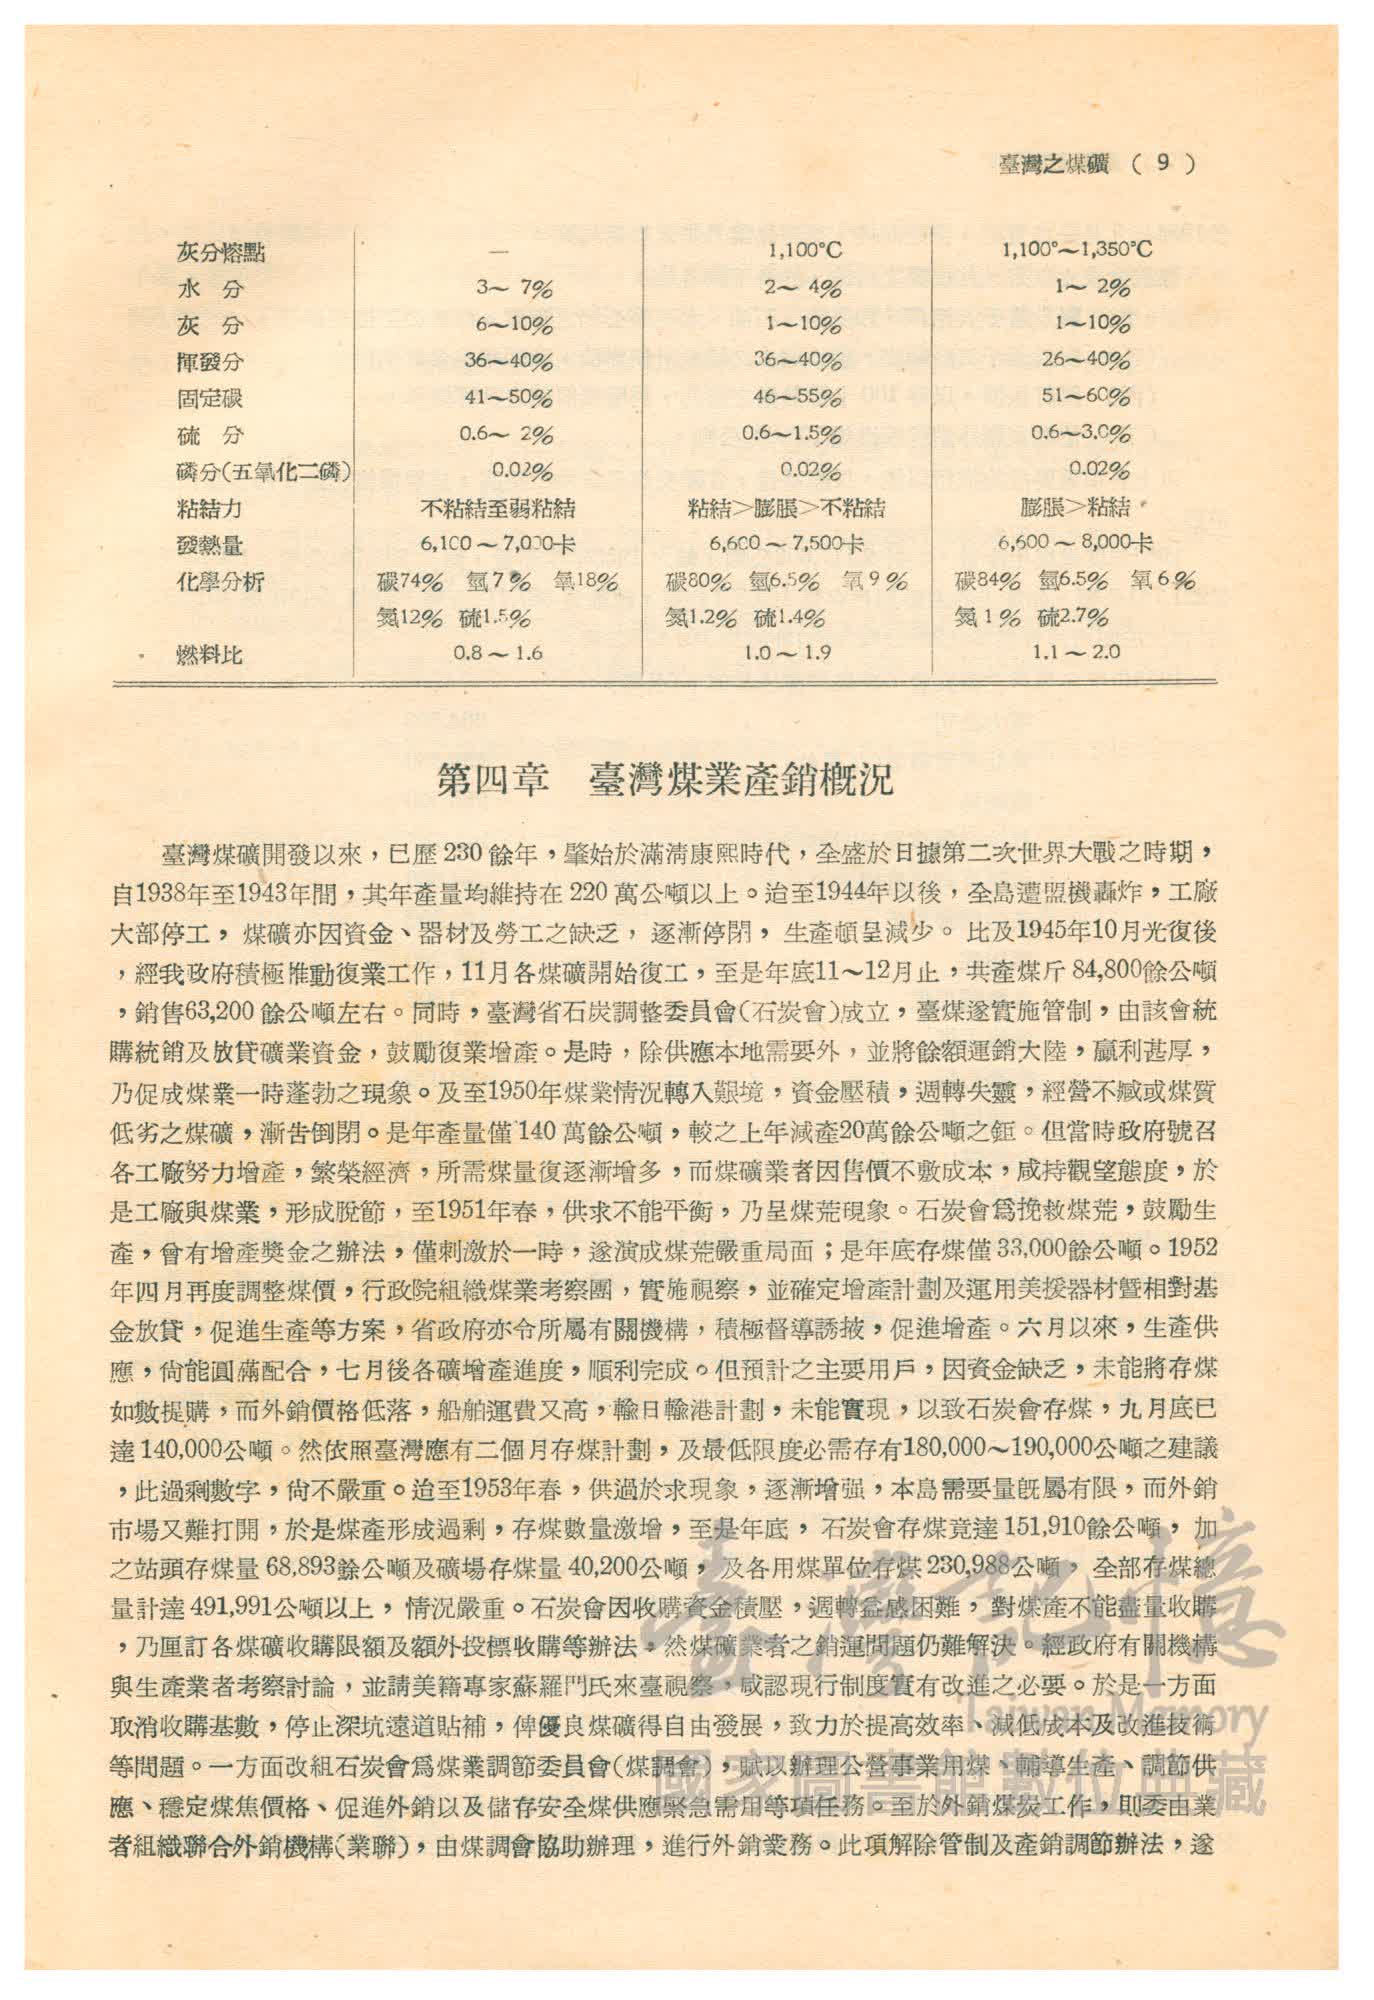 臺灣之煤礦 ( 9 )
灰分熔點 — 1,100°C 1,100°～1,350°C
水 分 3～ 7% 2～ 4% 1～ 2%
灰 分 6～10% 1～10% 1～10%
揮發分 36～40% 36～40% 26～40%
固定碳 41～50% 46～55% 51～60%
硫 分 0.6～ 2% 0.6～1.5% 0.6～3.0%
磷分(五氧化二磷) 0.02% 0.02% 0.02%
粘結力 不粘結至弱粘結 粘結＞膨脹＞不粘結 膨脹＞粘結
發熱量 6,100～7,000卡 6,600～7,500卡 6,600～8,000卡
化學分析 碳74% 氫7% 氧18% 碳80% 氫6.5% 氧9% 碳84% 氫6.5% 氧6%
氮12% 硫1.5% 氮1.2% 硫1.4% 氮1% 硫2.7%
燃料比 0.8～1.6 1.0～1.9 1.1～2.0
第四章 臺灣煤業產銷概況
臺灣煤礦開發以來，已歷230餘年，肇始於滿清康熙時代，全盛於日據第二次世界大戰之時期，
自1938年至1943年間，其年產量均維持在220萬公噸以上。迨至1944年以後，全島遭盟機轟炸，工廠
大部停工，煤礦亦因資金、器材及勞工之缺乏，逐漸停閉，生產頓呈減少。比及1945年10月光復後
，經我政府積極推動復業工作，11月各煤礦開始復工，至是年底11～12月止，共產煤斤84,800餘公噸
，銷售63,200餘公噸左右。同時，臺灣省石炭調整委員會(石炭會)成立，臺煤遂實施管制，由該會統
購統銷及放貸礦業資金，鼓勵復業增產。是時，除供應本地需要外，並將餘額運銷大陸，贏利甚厚，
乃促成煤業一時蓬勃之現象。及至1950年煤業情況轉入艱境，資金壓積，週轉失靈，經營不臧或煤質
低劣之煤礦，漸告倒閉。是年產量僅140萬餘公噸，較之上年減產20萬餘公噸之鉅。但當時政府號召
各工廠努力增產，繁榮經濟，所需煤量復逐漸增多，而煤礦業者因售價不敷成本，咸持觀望態度，於
是工廠與煤業，形成脫節，至1951年春，供求不能平衡，乃呈煤荒現象。石炭會爲挽救煤荒，鼓勵生
產，曾有增產獎金之辦法，僅刺激於一時，遂演成煤荒嚴重局面；是年底存煤僅33,000餘公噸。1952
年四月再度調整煤價，行政院組織煤業考察團，實施視察，並確定增產計劃及運用美援器材暨相對基
金放貸，促進生產等方案，省政府亦令所屬有關機構，積極督導誘掖，促進增產。六月以來，生產供
應，尙能圓滿配合，七月後各礦增產進度，順利完成。但預計之主要用戶，因資金缺乏，未能將存煤
如數提購，而外銷價格低落，船舶運費又高，輸日輸港計劃，未能實現，以致石炭會存煤，九月底已
達140,000公噸。然依照臺灣應有二個月存煤計劃，及最低限度必需存有180,000～190,000公噸之建議
，此過剩數字，尙不嚴重。迨至1953年春，供過於求現象，逐漸增强，本島需要量旣屬有限，而外銷
市場又難打開，於是煤產形成過剩，存煤數量激增，至是年底，石炭會存煤竟達151,910餘公噸，加
之站頭存煤量68,893餘公噸及礦場存煤量40,200公噸，及各用煤單位存煤230,988公噸，全部存煤總
量計達491,991公噸以上，情況嚴重。石炭會因收購資金積壓，週轉益感困難，對煤產不能盡量收購
，乃厘訂各煤礦收購限額及額外投標收購等辦法。然煤礦業者之銷運問題仍難解決。經政府有關機構
與生產業者考察討論，並請美籍專家蘇羅門氏來臺視察，咸認現行制度實有改進之必要。於是一方面
取消收購基數，停止深坑遠道貼補，俾優良煤礦得自由發展，致力於提高效率、減低成本及改進技術
等問題。一方面改組石炭會爲煤業調節委員會(煤調會)，賦以辦理公營事業用煤、輔導生產、調節供
應、穩定煤焦價格、促進外銷以及儲存安全煤供應緊急需用等項任務。至於外銷煤炭工作，則委由業
者組織聯合外銷機構(業聯)，由煤調會協助辦理，進行外銷業務。此項解除管制及產銷調節辦法，遂
臺灣記憶
Taiwan Memory
國家圖書館數位典藏